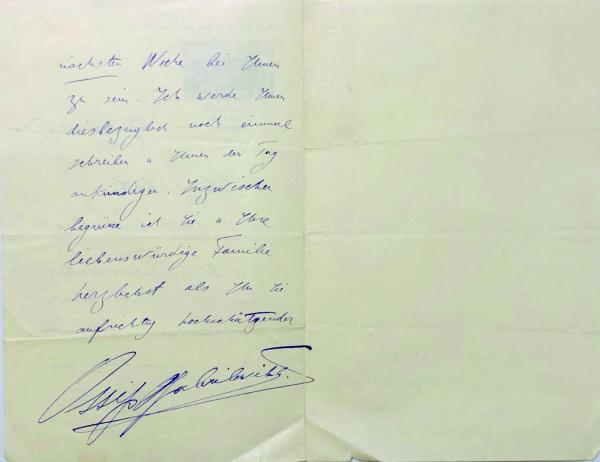 nächsten Woche bei Ihnen
zu sein. Ich werde Ihnen
diesbezüglich noch einmal
schreiben u. Ihnen den Tag
ankündigen. Inzwischen
begrüsse ich Sie u. Ihre
liebenswürdige Familie
herzlichst als Ihr Sie
aufrichtig hochschätzender
Ossip Gabrilowitsch.